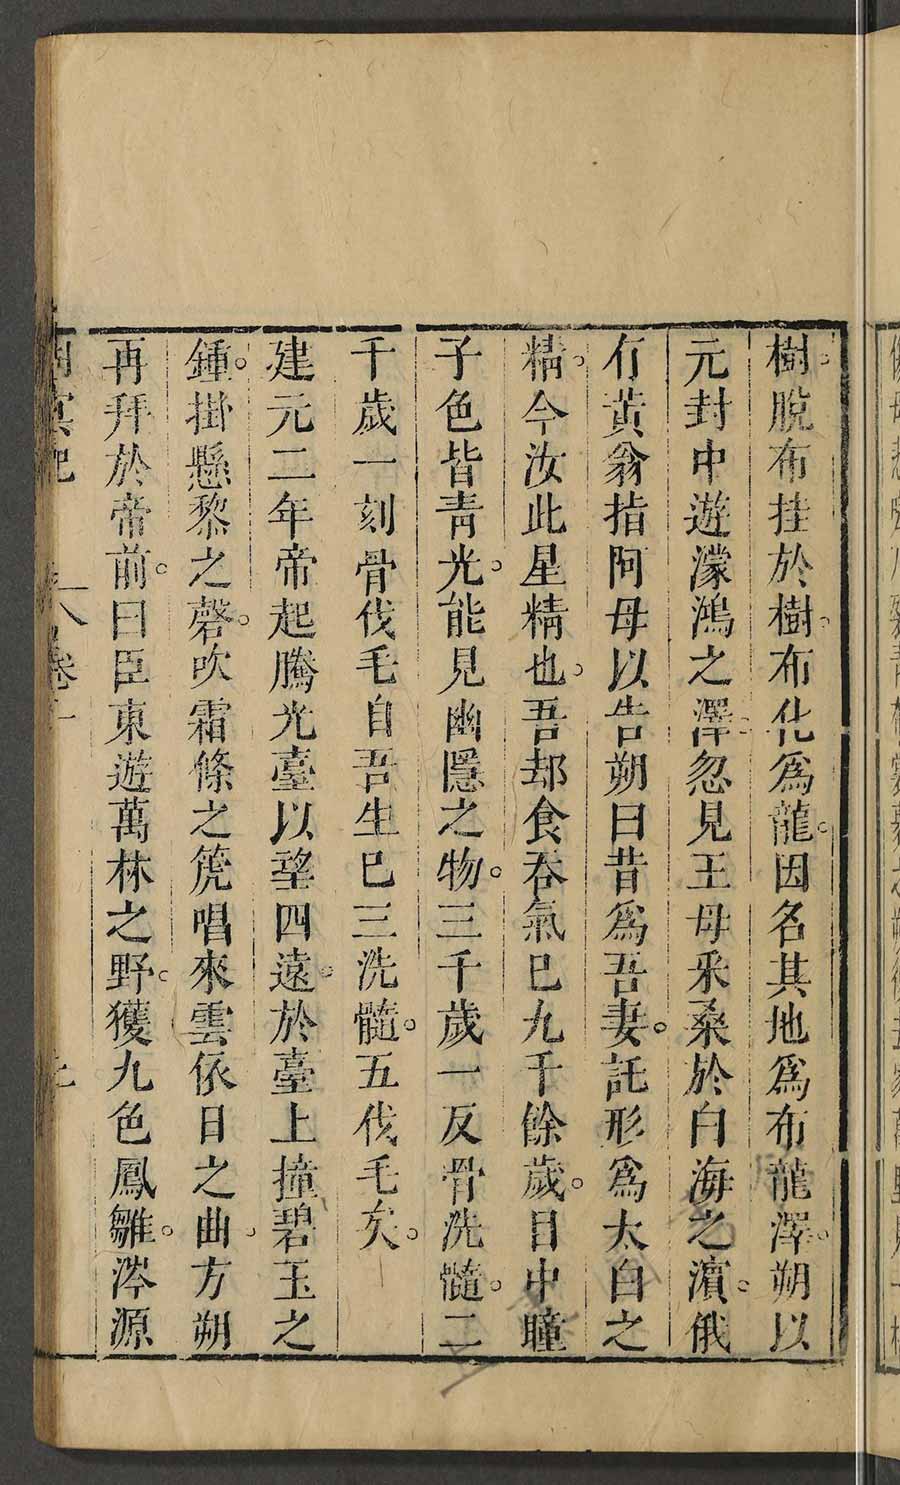 樹脫布挂於樹布化爲龍因名其地爲布龍澤朔以
元封中遊濛鴻之澤忽見王母采桑於白海之濱俄
有黃翁指阿母以告朔曰昔爲吾妻託形爲太白之
精今汝此星精也吾却食吞氣已九千餘歲目中瞳
子色皆靑光能見幽隱之物三千歲一反骨洗髓二
千歲一刻骨伐毛自吾生已三洗髓五伐毛矣
建元二年帝起騰光臺以望四遠於臺上撞碧玉之
鍾掛懸黎之磬吹霜條之篪唱來雲依日之曲方朔
再拜於帝前曰臣東遊萬林之野獲九色鳳雛涔源
冥記 卷一